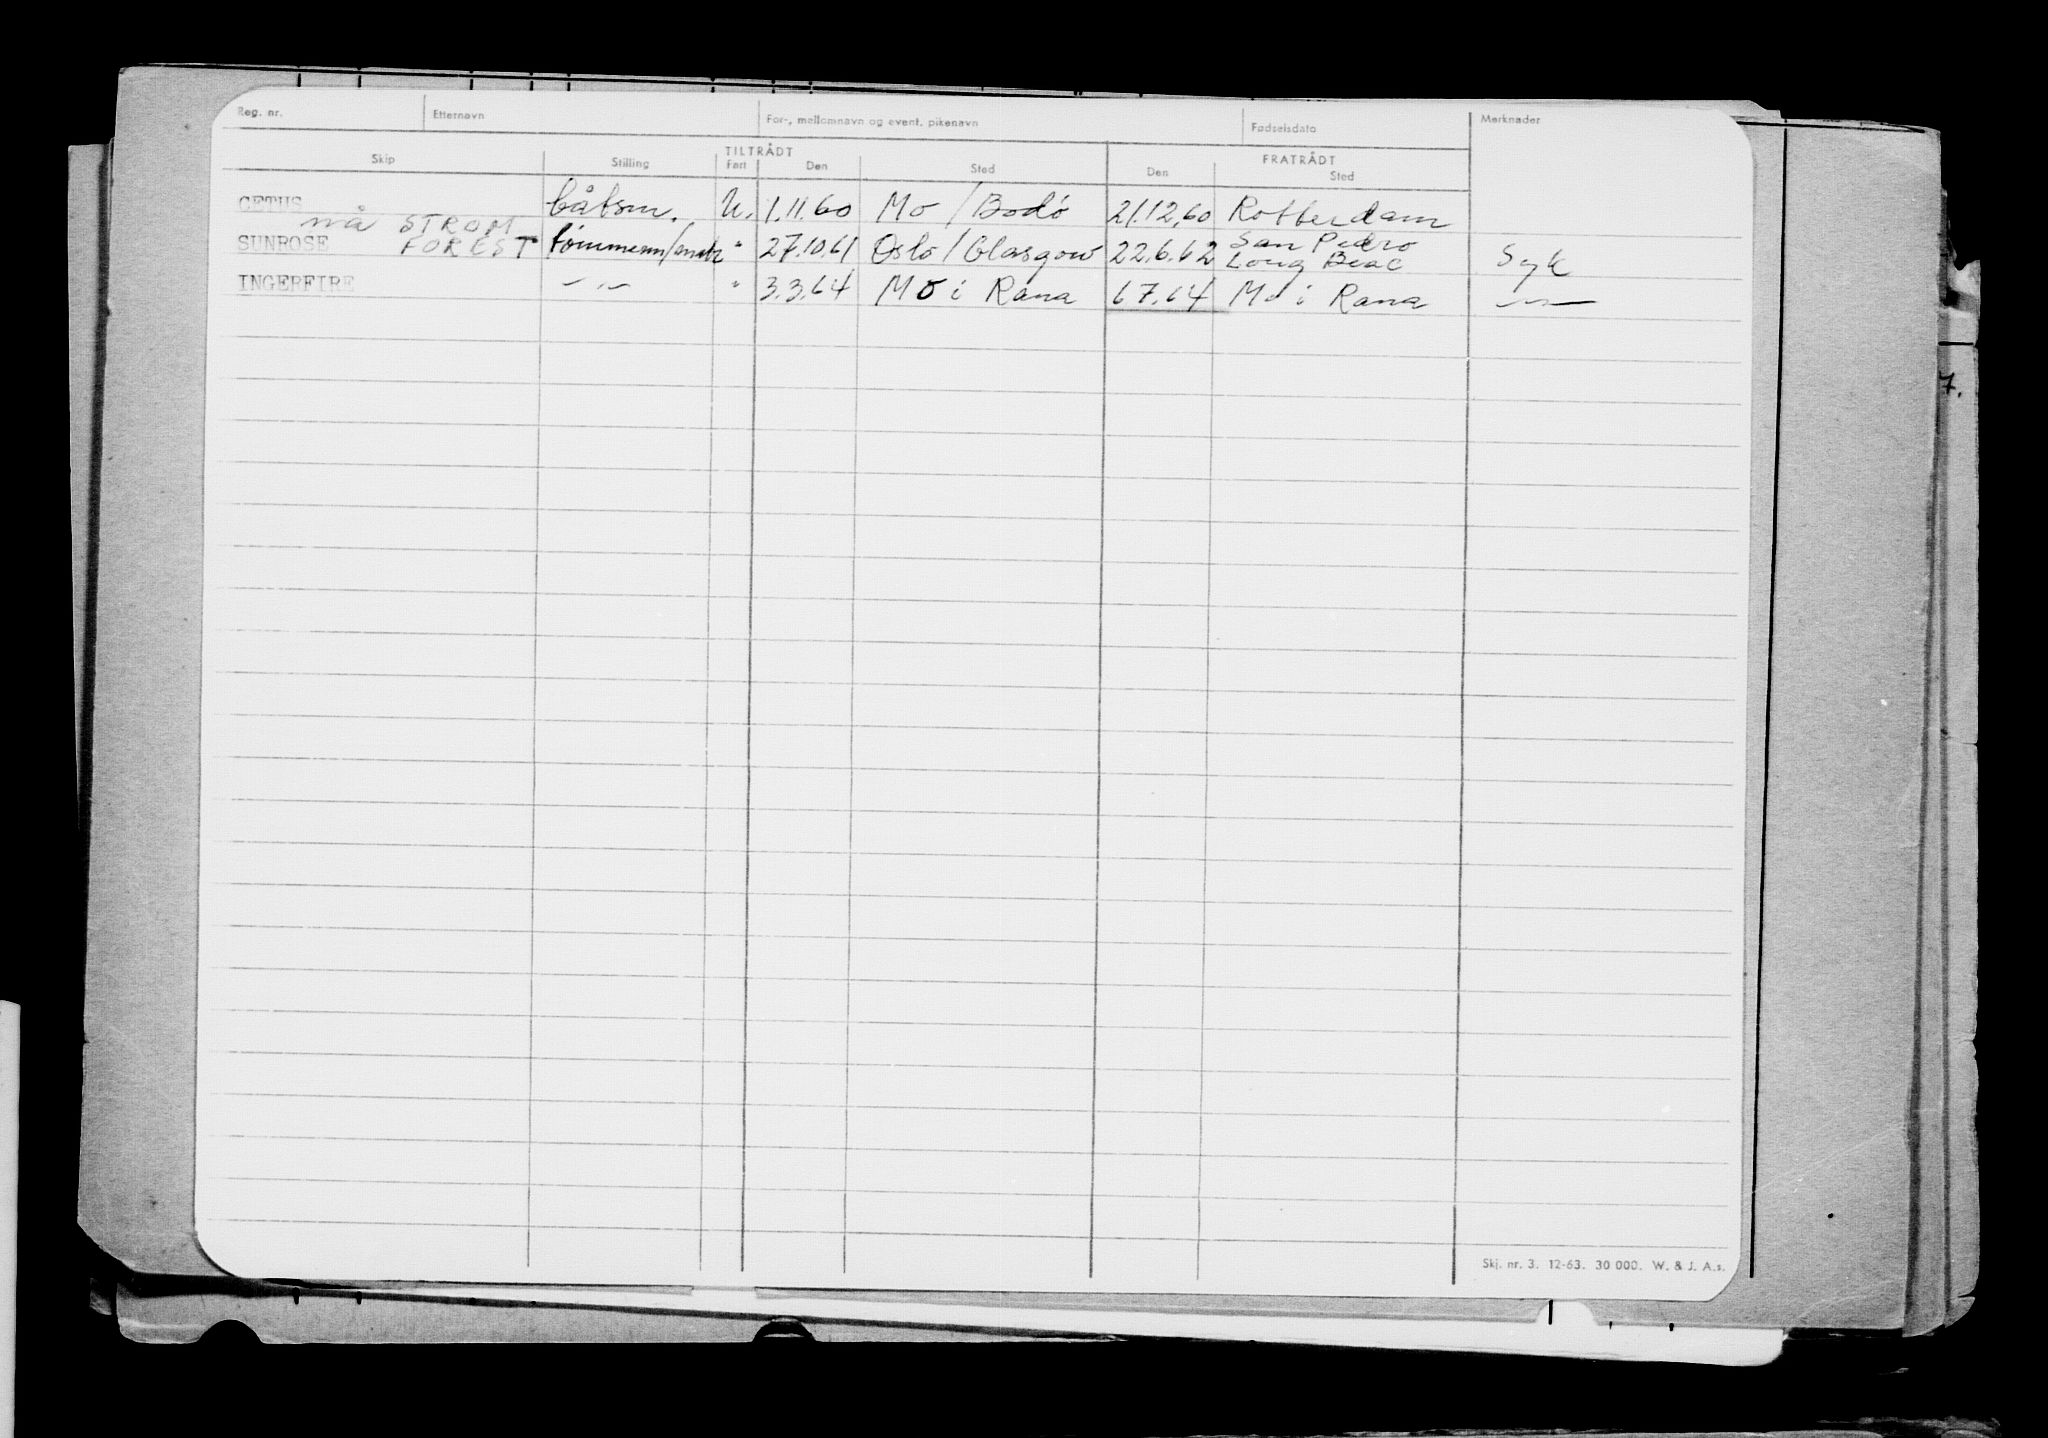 Reg. nr. Etternavn For-, mellomnavn og event. pikenavn Fødselsdato Merknader
TILTRÅDT FRATRÅDT
Skip Stilling Fart Den Sted Den Sted
CETUS båtsm. U. 1.11.60 Mo / Bodö 21.12.60 Rotterdam
nå STROM
FOREST
SUNROSE tömmerm/ " 27.10.61 Oslo / Glasgow 22.6.62 San Pedro
Long Beac Syk
INGERFIRE — " — " 3.3.64 Mo i Rana 6 7.64 Mo i Rana — " —
7.
Skj. nr. 3. 12-63. 30 000. W. & J. A.s.